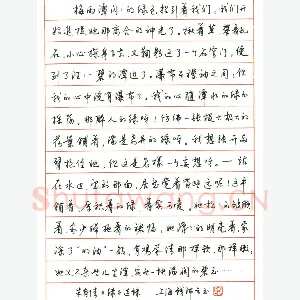 梅雨潭闪闪的绿色招引着我们，我们开
始追捉她那离合的神光了。揪着草，攀着乱
石，小心探身下去，又鞠躬过了一个石穹门，便
到了汪汪一碧的潭边了。瀑布在襟袖之间，但
我的心中已没有瀑布了。我的心随潭水的绿而
摇荡。那醉人的绿呀！仿佛一张极大极大的
荷叶铺着，满是奇异的绿呀。我想张开两
臂抱住她，但这是怎样一个妄想呀。——站
在水边，望到那面，居然觉着有些远呢！这平
铺着，厚积着的绿，着实可爱。她松松的皱缬
着，像少妇拖着的裙幅；她滑滑的明亮着，像
涂了“明油”一般，有鸡蛋清那样软，那样嫩，
她又不杂些儿尘滓，宛然一块温润的碧玉……
朱自清《绿》选抄 上海